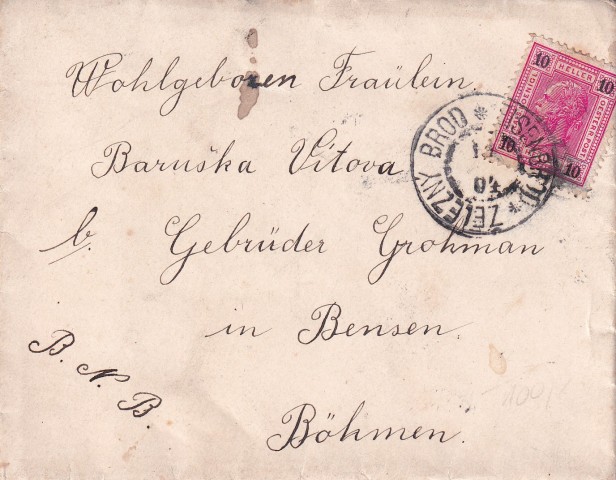 Wohlgeboren Fräulein.
Baruška Vítova
b. Gebrüder Grohman
in Bensen.
B. N. B.
Böhmen.
10 HELLER 10
10 10
ŽELEZNY BROD
04
100/